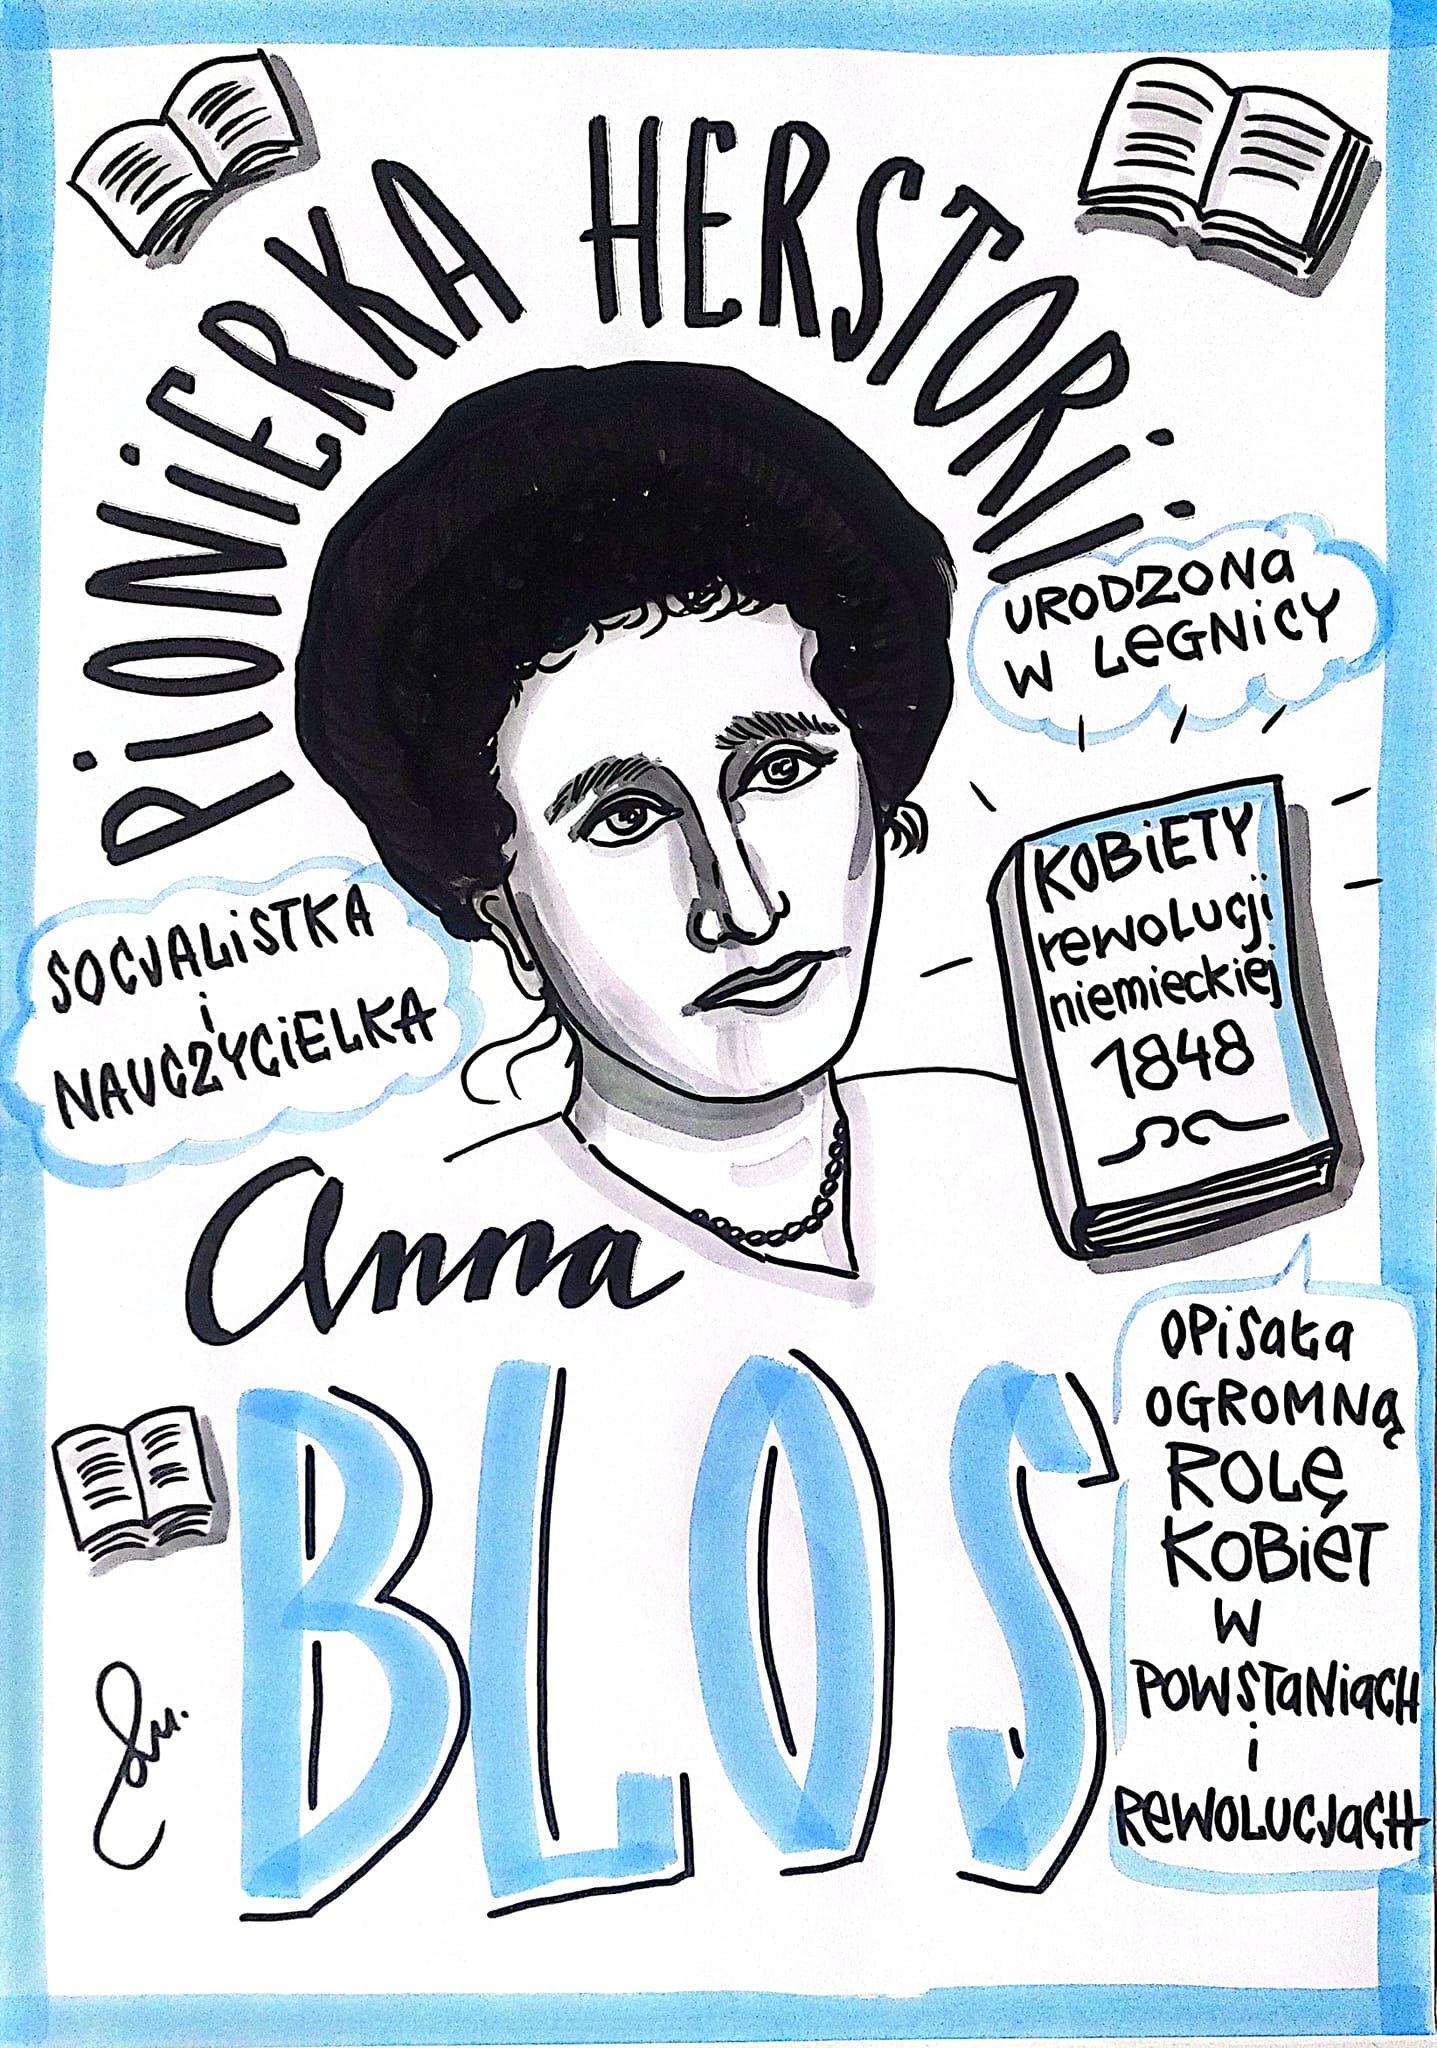 PiONiERKA HERSTORii
URODZONa
W LEGNiCY
SOCJALiSTKA
i
NAUCZYCiELKA
KOBiETY
rewolucji
niemieckiej
1848
Anna
BLOS
OPisała
OGROMNą
ROLĘ
KOBiET
W
POWSTaNiaCH
i
REWOLUCJaCH